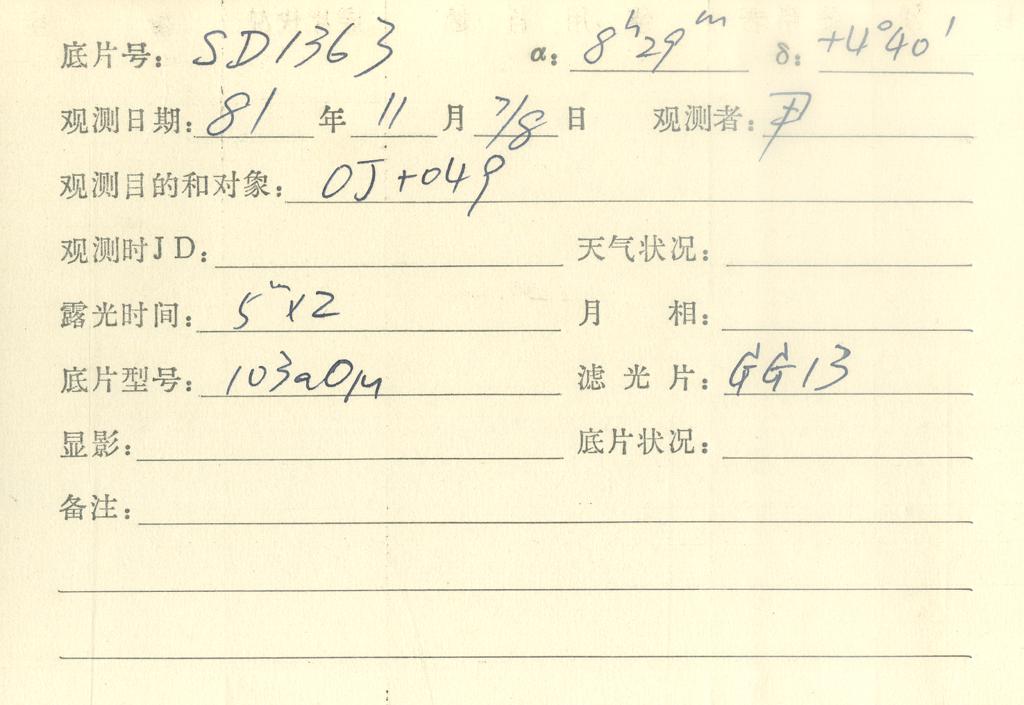 底片号: SD1363 α: 8ʰ29ᵐ δ: +4°40′
观测日期: 81 年 11 月 7/8 日 观测者:
观测目的和对象: OJ+049
观测时JD: 天气状况:
露光时间: 5ᵐ×2 月 相:
底片型号: 103aO 滤光片: GG13
显影: 底片状况:
备注: